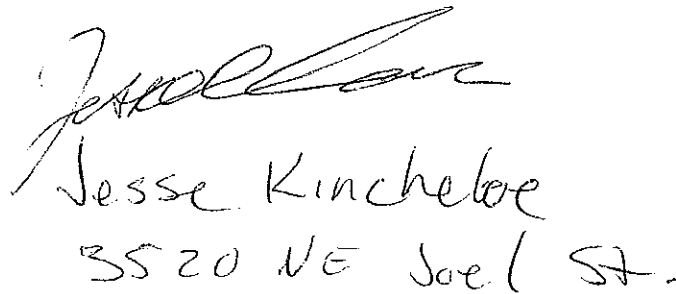 Jesse Kincheloe
3520 NE Joel St.